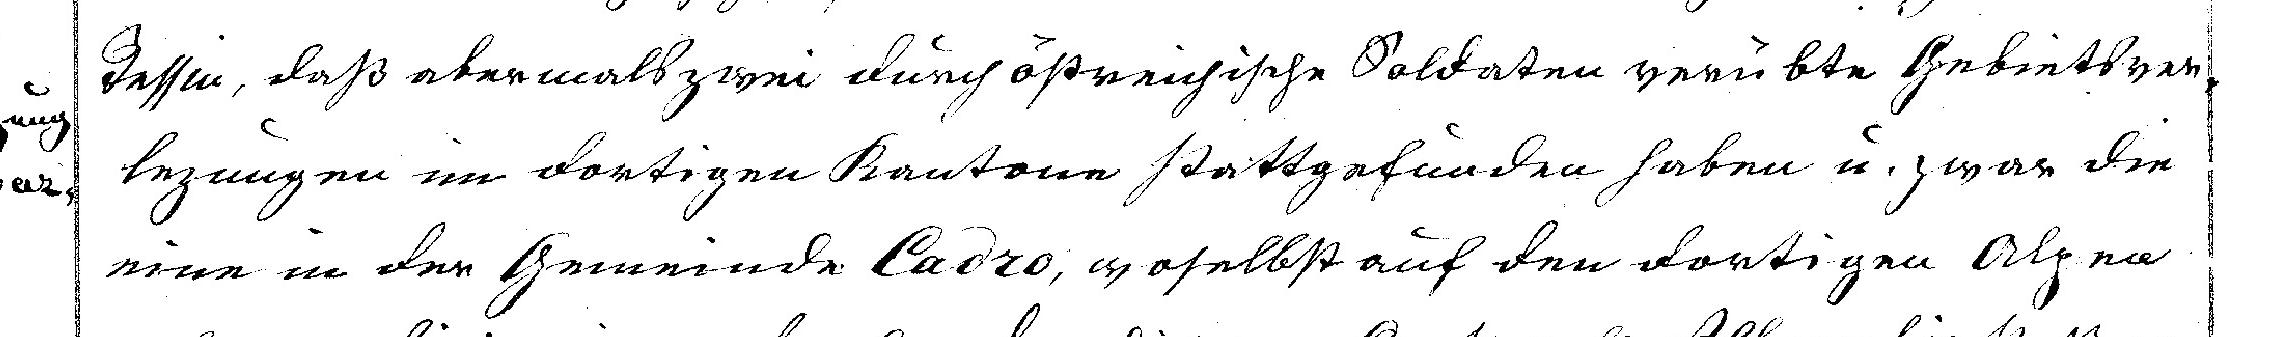 Tessin, daß abermals zwei durch östreichische Soldaten verübte Gebietsver-
lezungen im dortigen Kantone stattgefunden haben u. zwar die
eine in der Gemeinde Cadro, woselbst auf den dortigen Alpen